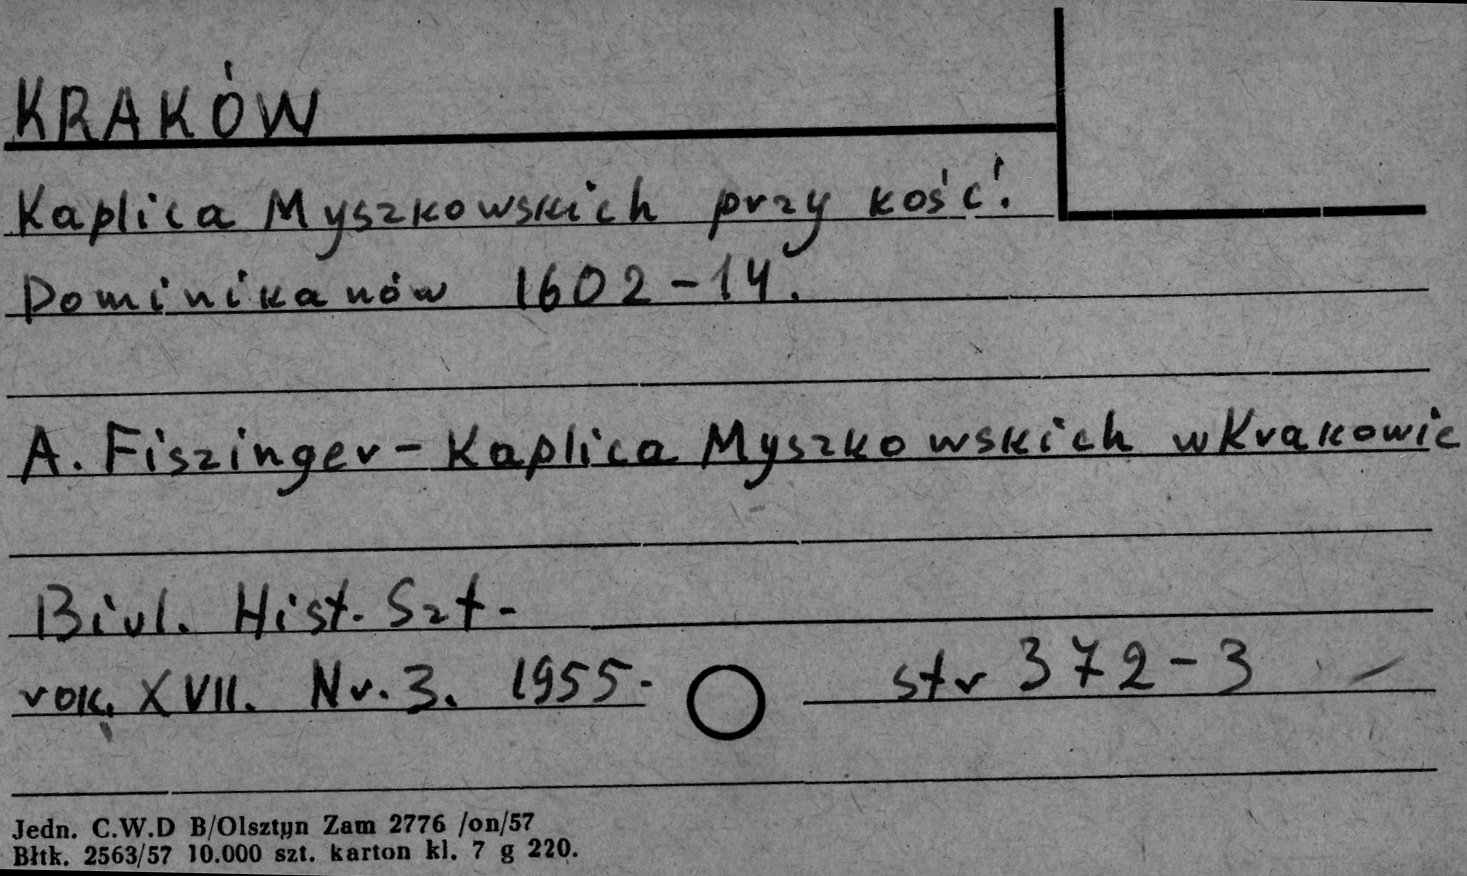 KRAKÓW
Kaplica Myszkowskich przy kość.
Dominikanów 1602-14.
A. Fiszinger - Kaplica Myszkowskich w Krakowie
Biul. Hist. Szt.
rok. XVII. Nr. 3. 1955. str 372-3
Jedn. C.W.D B/Olsztyn Zam 2776 /on/57
Błtk. 2563/57 10.000 szt. karton kl. 7 g 220.